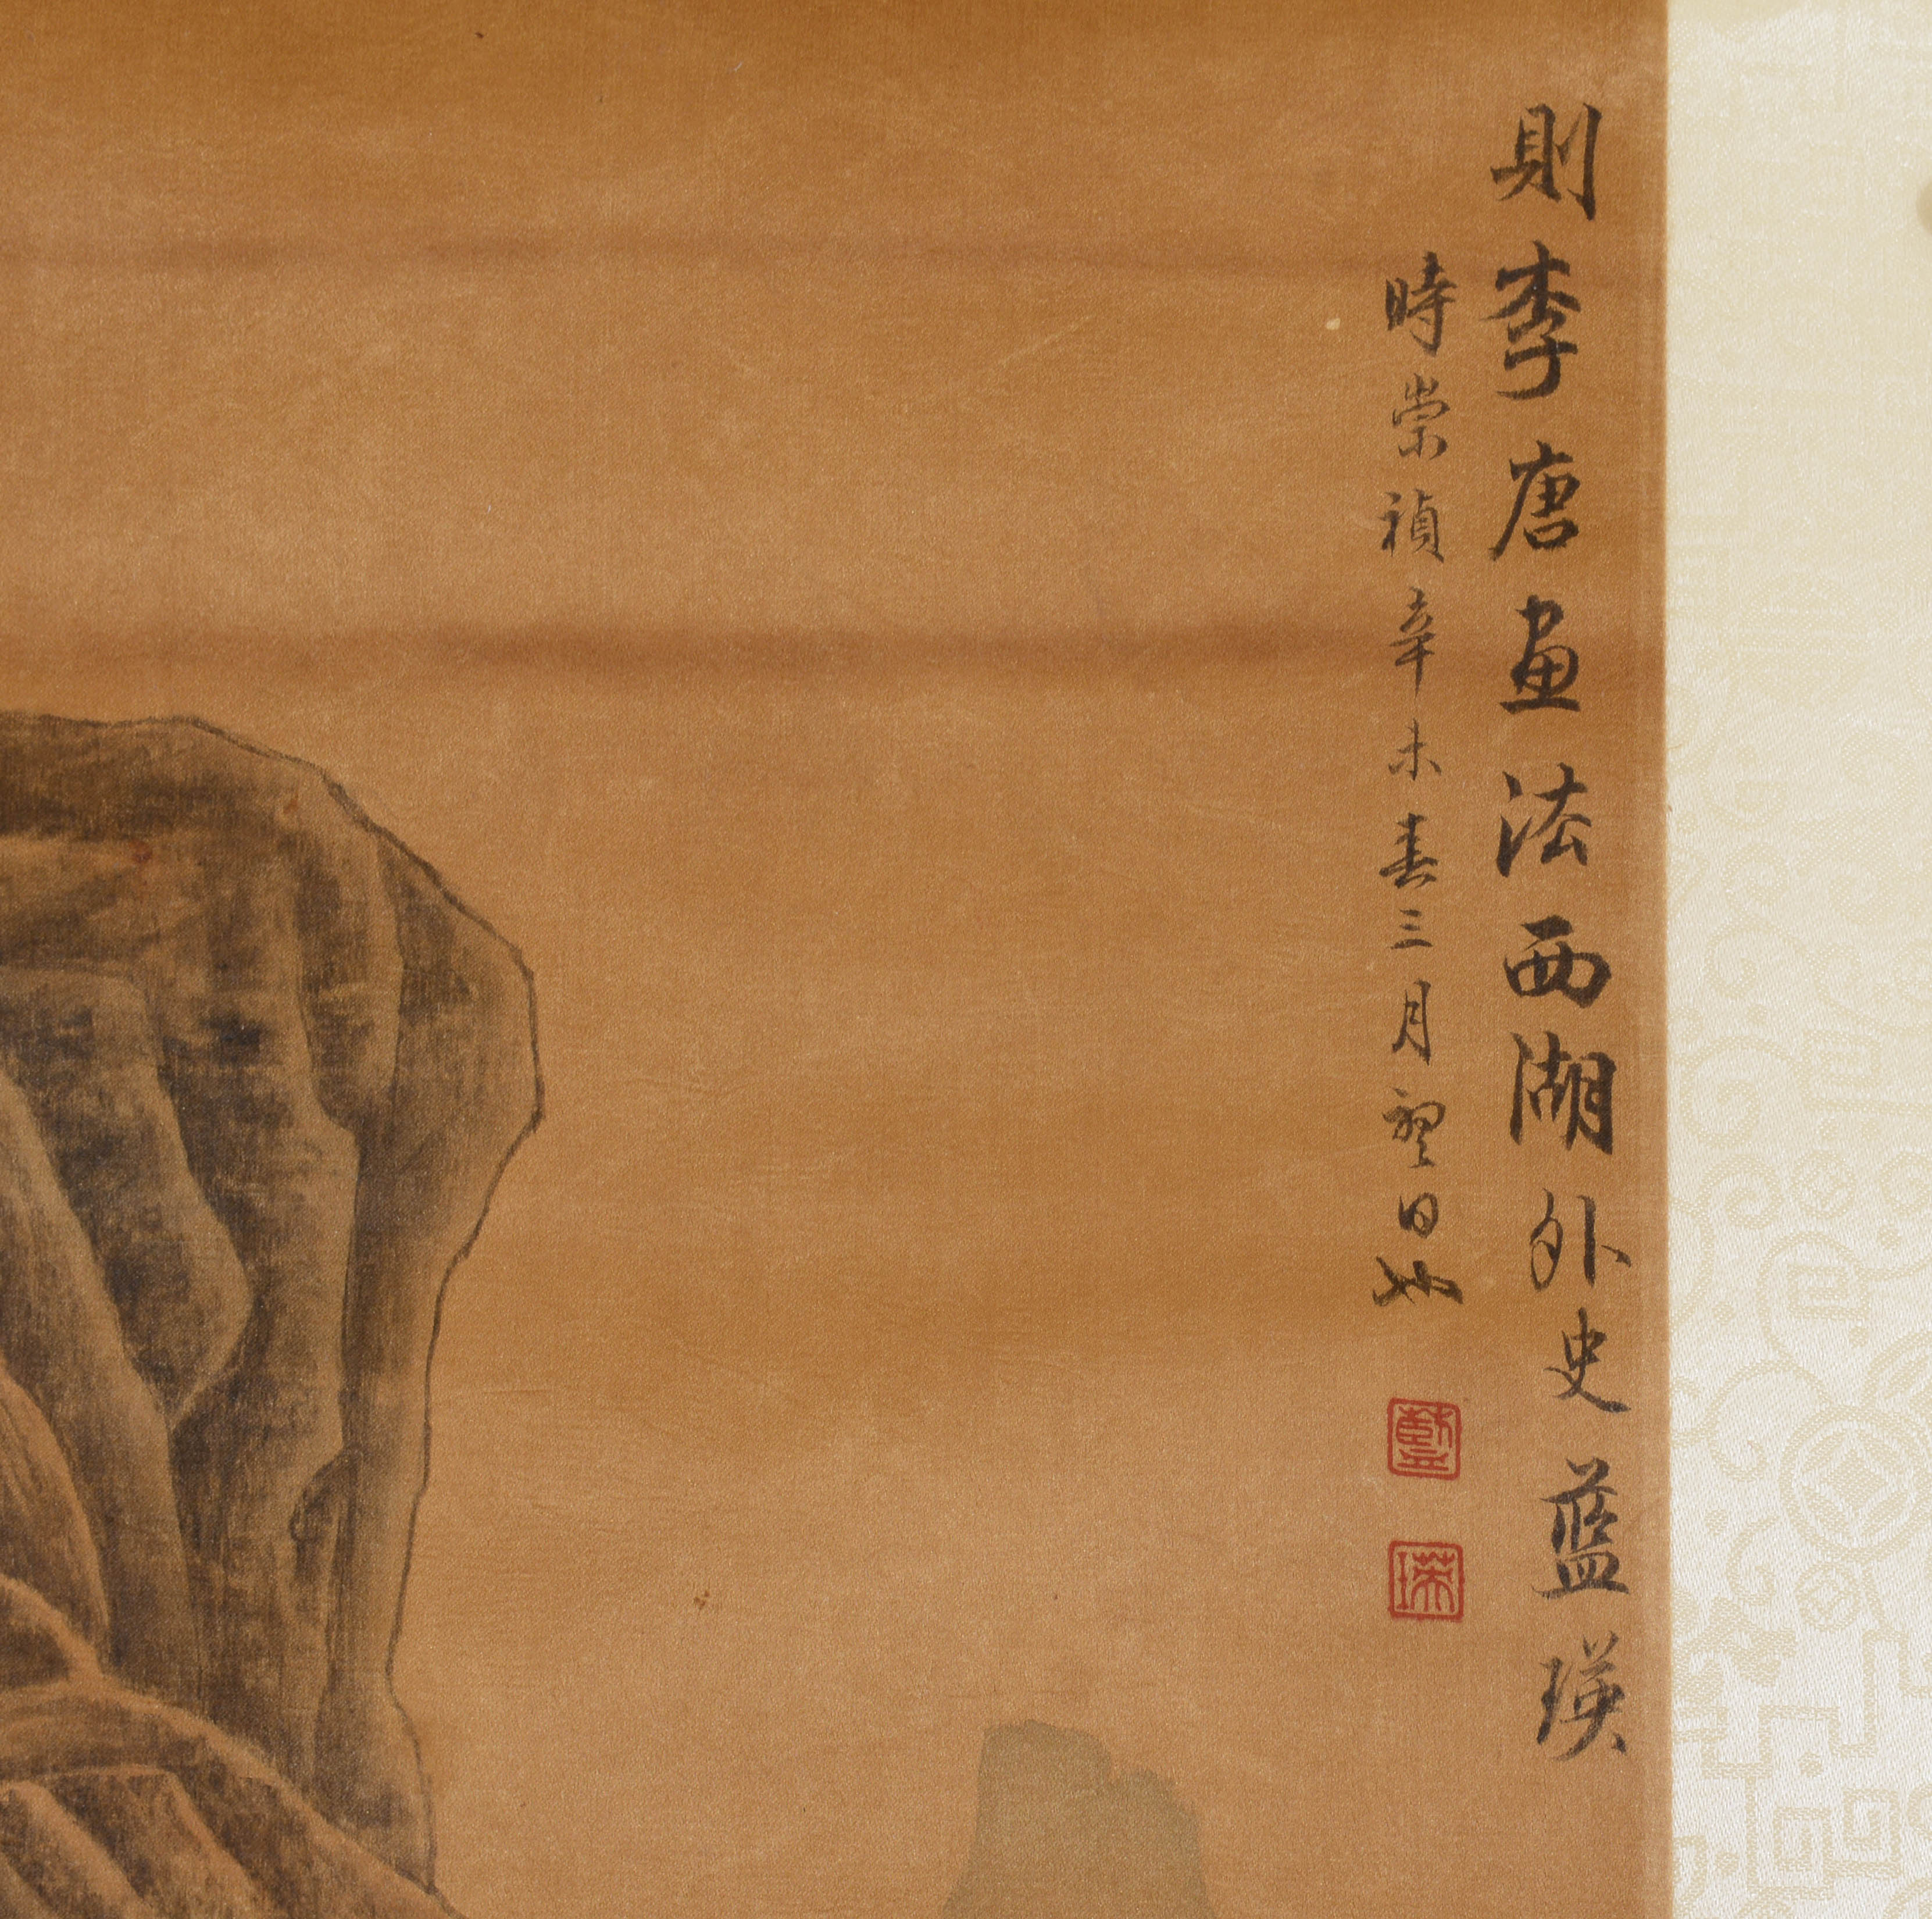 則李唐畫法西湖外史藍瑛
時崇禎辛未春三月望日也
藍
瑛